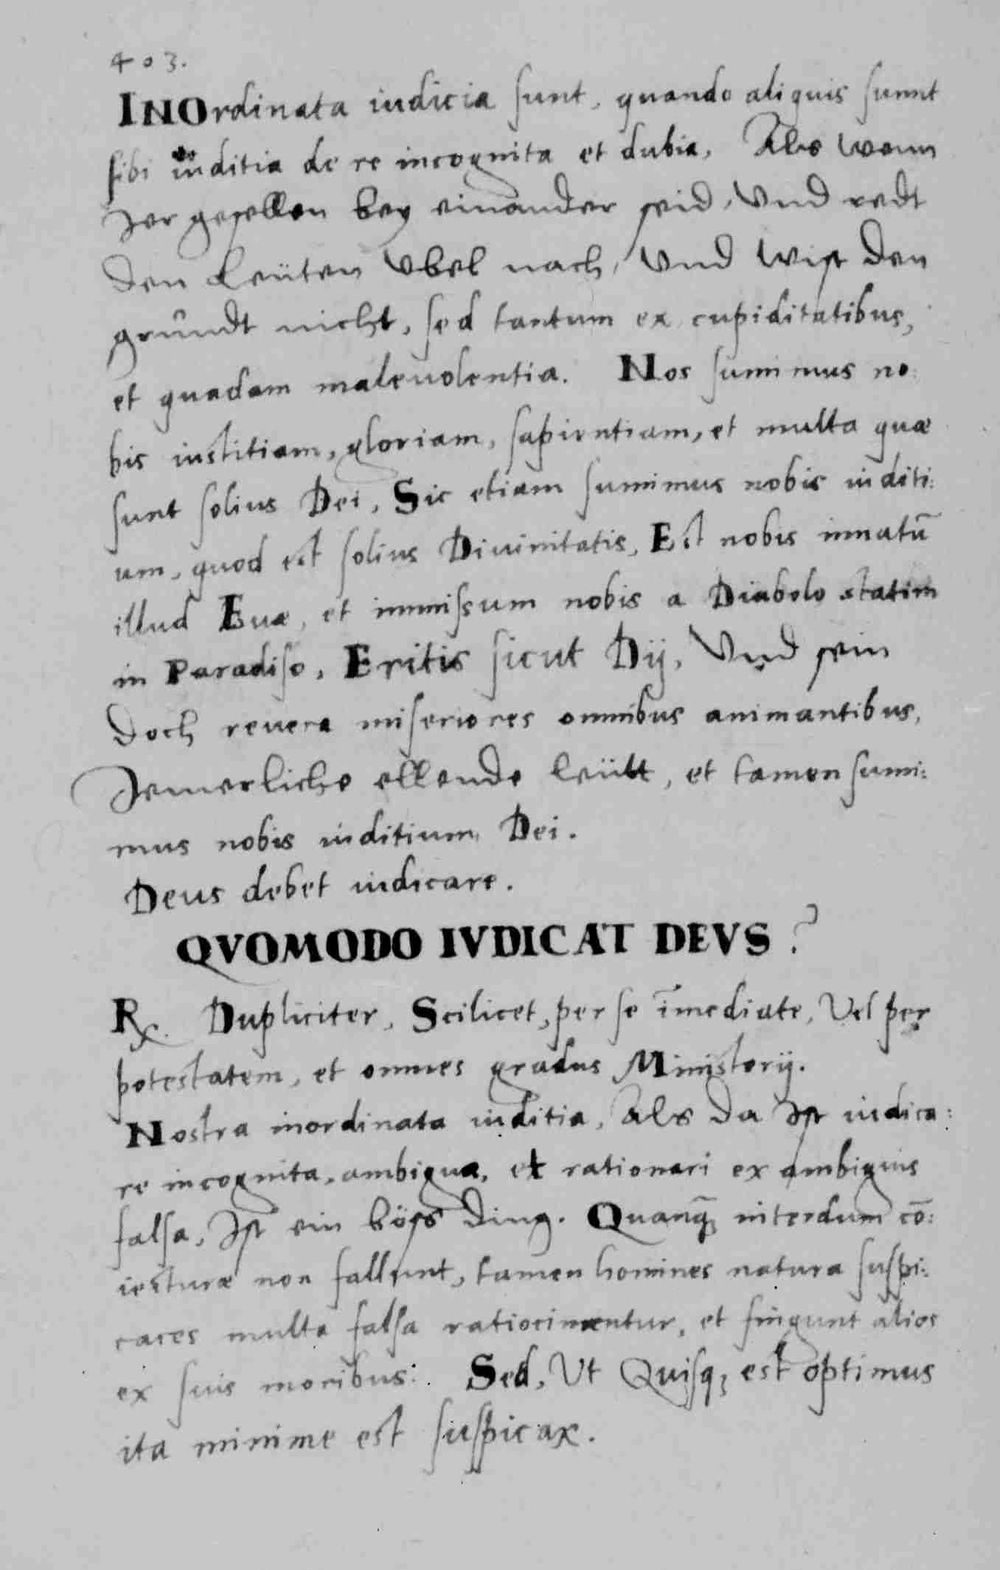 403.
INOrdinata iudicia sunt, quando aliquis sumit
sibi iuditia de re incognita et dubia, Als wenn
Jer gesellen bey einander seid, Vnd redt
den Leüten Vbel nach, Vnd Wist den
grundt nicht, sed tantum ex cupiditatibus,
et quadam maleuolentia. Nos sumimus no:
bis iustitiam, gloriam, sapientiam, et multa quæ
sunt solius Dei, Sic etiam sumimus nobis iuditi:
um, quod est solius Diuinitatis, Est nobis innatū
illud Euæ, et immissum nobis a Diabolo statim
in Paradiso, Eritis sicut Dij, Vnd sein
doch reuera miseriores omnibus animantibus,
Jemerliche ellende leütt, et tamen sumi:
mus nobis iuditium Dei.
Deus debet iudicare.
QVOMODO IVDICAT DEVS?
R. Dupliciter, Scilicet, per se īmediate, Vel per
potestatem, et omnes gradus Ministerij.
Nostra inordinata iuditia, Als da Ist iudica:
re incognita, ambigua, et rationari ex ambiguis
falsa, Ist ein böss ding. Quanq̃ interdum cō:
iecturæ non fallunt, tamen homines natura suspi:
caces multa falsa ratiocinantur, et fingunt alios
ex suis moribus: Sed, Ut Quisq; est optimus
ita minime est suspicax.